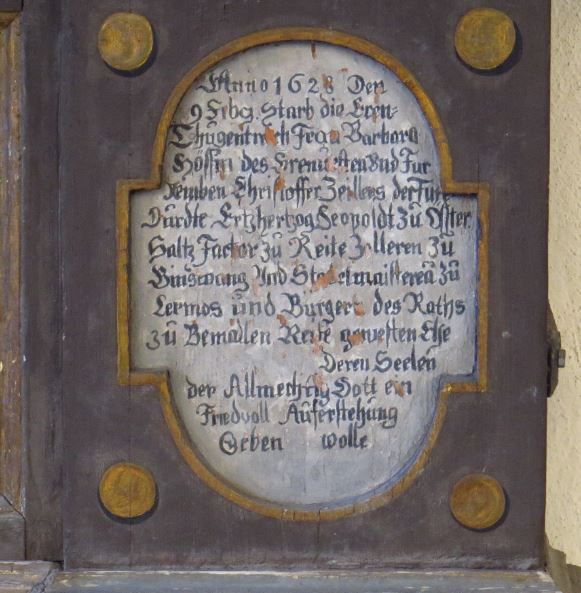 Anno 1628 Den
9 Febg. Starb die Eren-
Thugentreich Frau Barbara
Hössin des Erenuesten Und Fur
nemben Christoffer Zeillers der Furst
Durdte. Ertzhertzog Leopoldt Zu Öster
Saltz Factor zu Reite Zolleren zu
Binswang Und Stadelmaisteren zu
Lermos und Burgers des Raths
zu Bemadlen Reite gewesten Ehe
Deren Seelen
der Allmechtig Gott ein
Friedvoll Auferstehung
Geben wolle